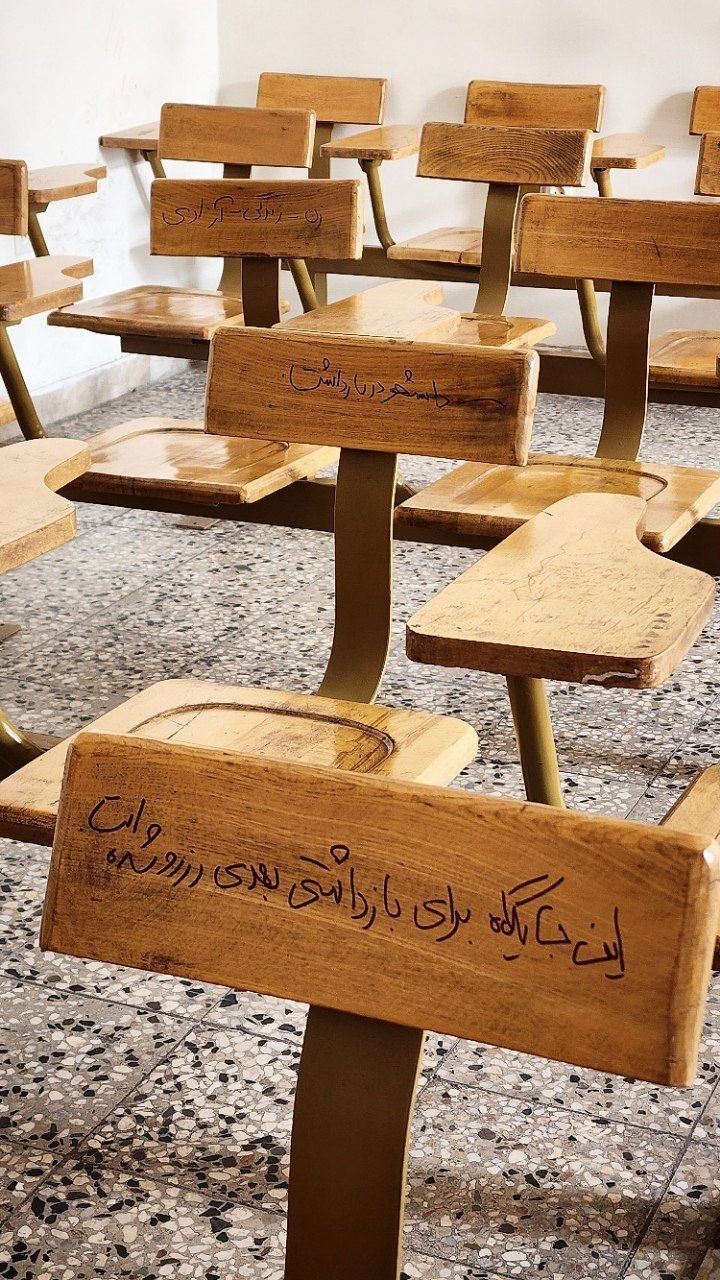 زن - زندگی - آزادی
دانشجو در بازداشت
این جایگاه برای بازداشتی بعدی رزرو شده
است